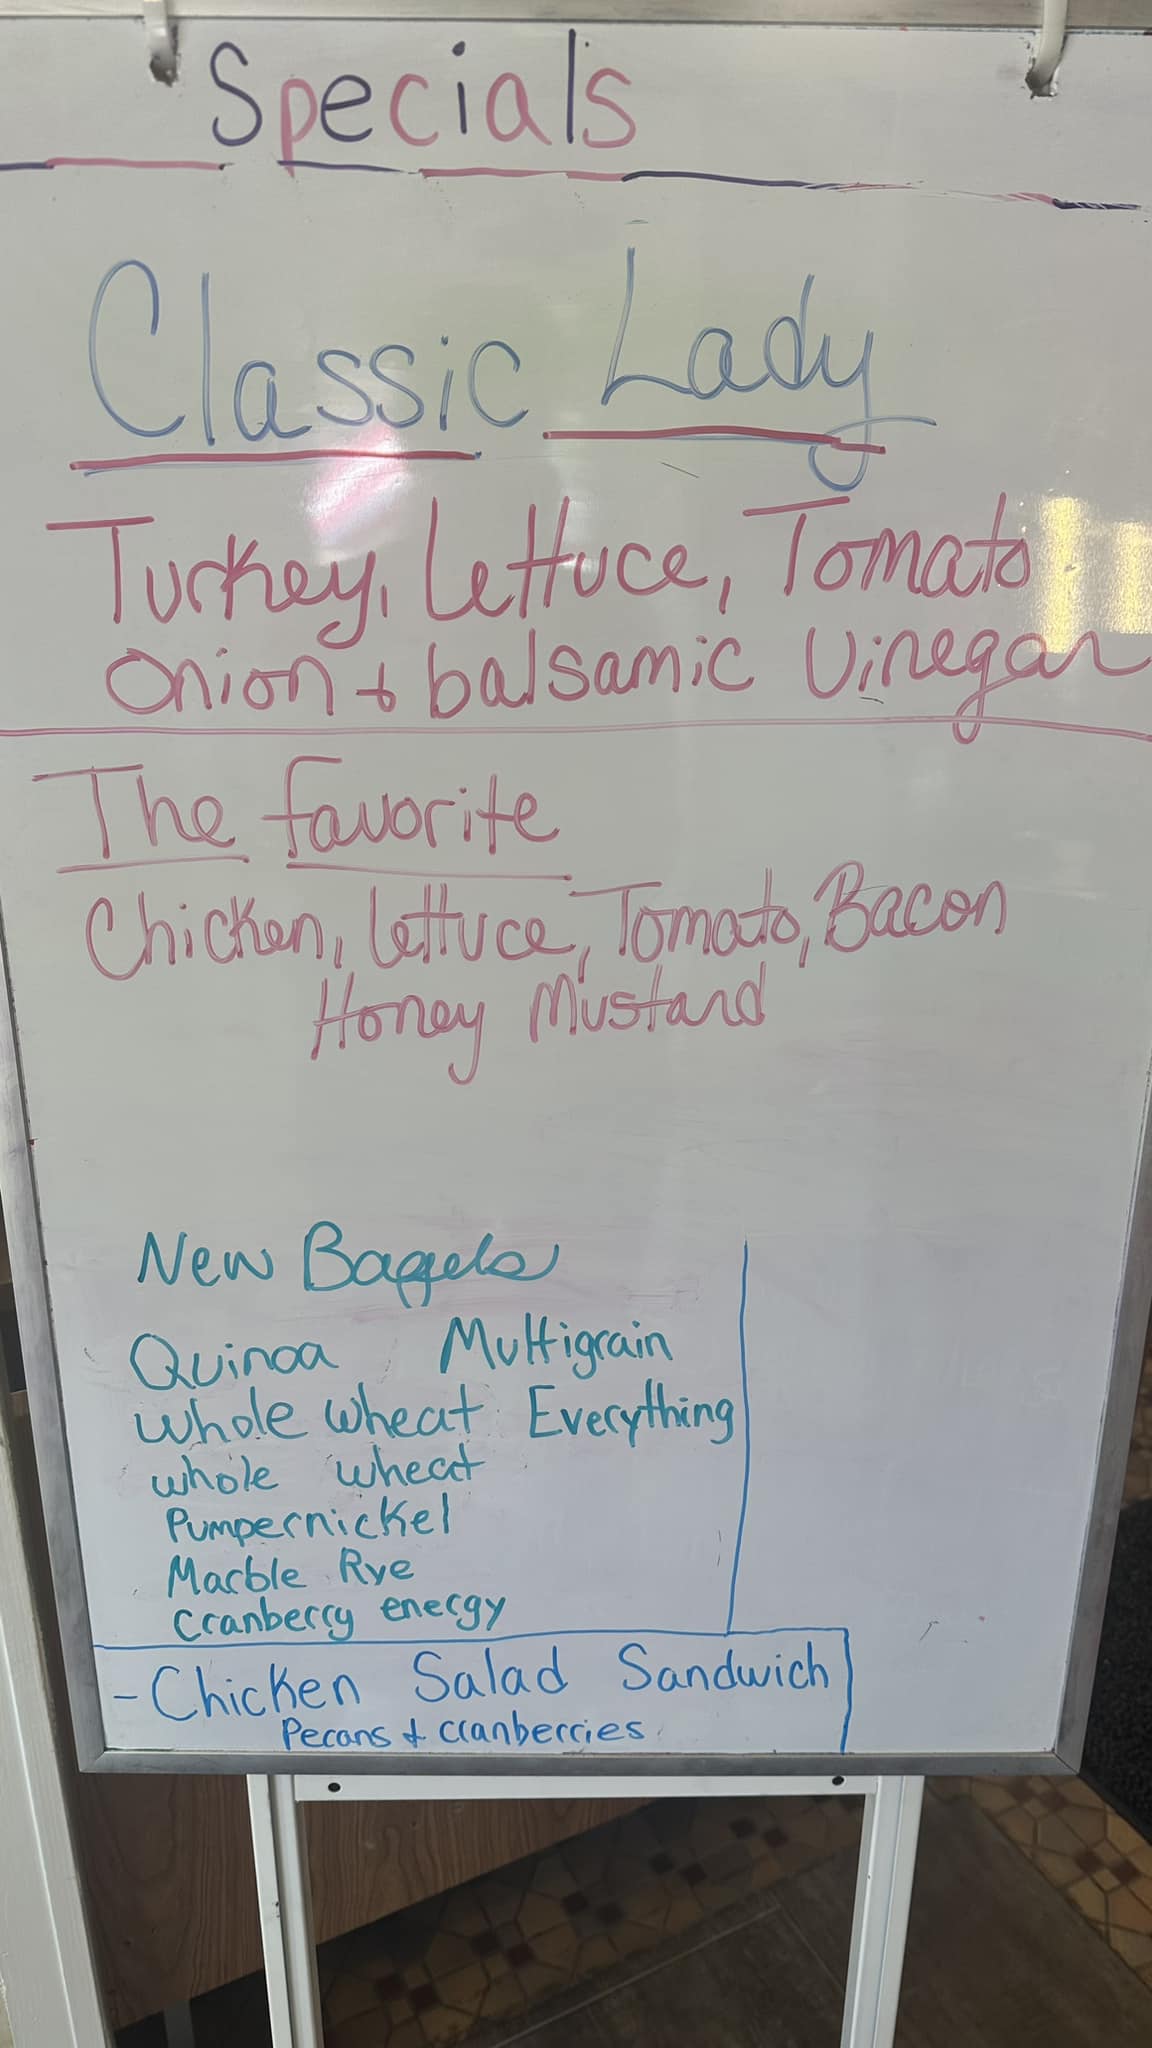 Specials
Classic Lady
Turkey, Lettuce, Tomato
Onion + balsamic Vinegar
The favorite
Chicken, Lettuce, Tomato, Bacon
Honey Mustard
New Bagels
Quinoa Multigrain
Whole Wheat Everything
whole wheat
Pumpernickel
Marble Rye
Cranberry energy
- Chicken Salad Sandwich
Pecans + cranberries